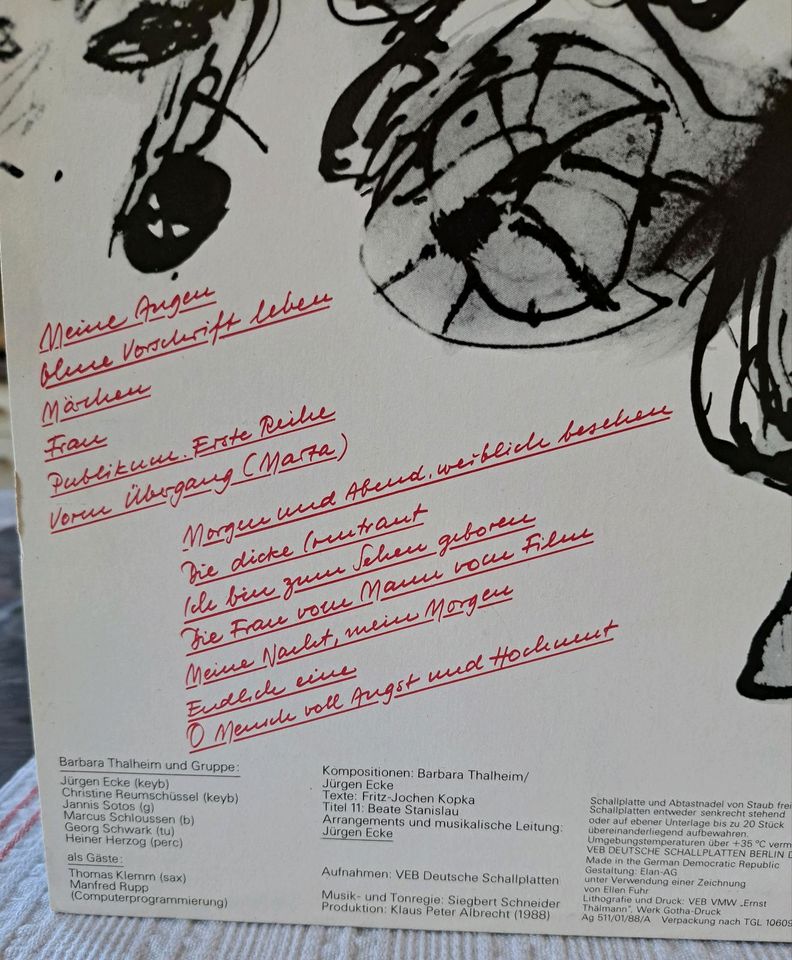 Meine Augen
Ohne Vorschrift leben
Märchen
Frau
Publikum. Erste Reihe
Vorm Übergang (Marza)
Morgen und Abend, weiblich besehen
Die dicke Contraut
Ich bin zum Sehen geboren
Die Frau vom Mann vom Film
Meine Nacht, mein Morgen
Endlich eine
O Mensch voll Angst und Hochmut
Barbara Thalheim und Gruppe:
Jürgen Ecke (keyb)
Christine Reumschüssel (keyb)
Jannis Sotos (g)
Marcus Schloussen (b)
Georg Schwark (tu)
Heiner Herzog (perc)
als Gäste:
Thomas Klemm (sax)
Manfred Rupp
(Computerprogrammierung)
Kompositionen: Barbara Thalheim/
Jürgen Ecke
Texte: Fritz-Jochen Kopka
Titel 11: Beate Stanislau
Arrangements und musikalische Leitung:
Jürgen Ecke
Aufnahmen: VEB Deutsche Schallplatten
Musik- und Tonregie: Siegbert Schneider
Produktion: Klaus Peter Albrecht (1988)
Schallplatte und Abtastnadel von Staub frei
Schallplatten entweder senkrecht stehend
oder auf ebener Unterlage bis zu 20 Stück
übereinanderliegend aufbewahren.
Umgebungstemperaturen über +35 °C verm
VEB DEUTSCHE SCHALLPLATTEN BERLIN D
Made in the German Democratic Republic
Gestaltung: Elan-AG
unter Verwendung einer Zeichnung
von Ellen Fuhr
Lithografie und Druck: VEB VMW „Ernst
Thälmann", Werk Gotha-Druck
Ag 511/01/88/A Verpackung nach TGL 10609